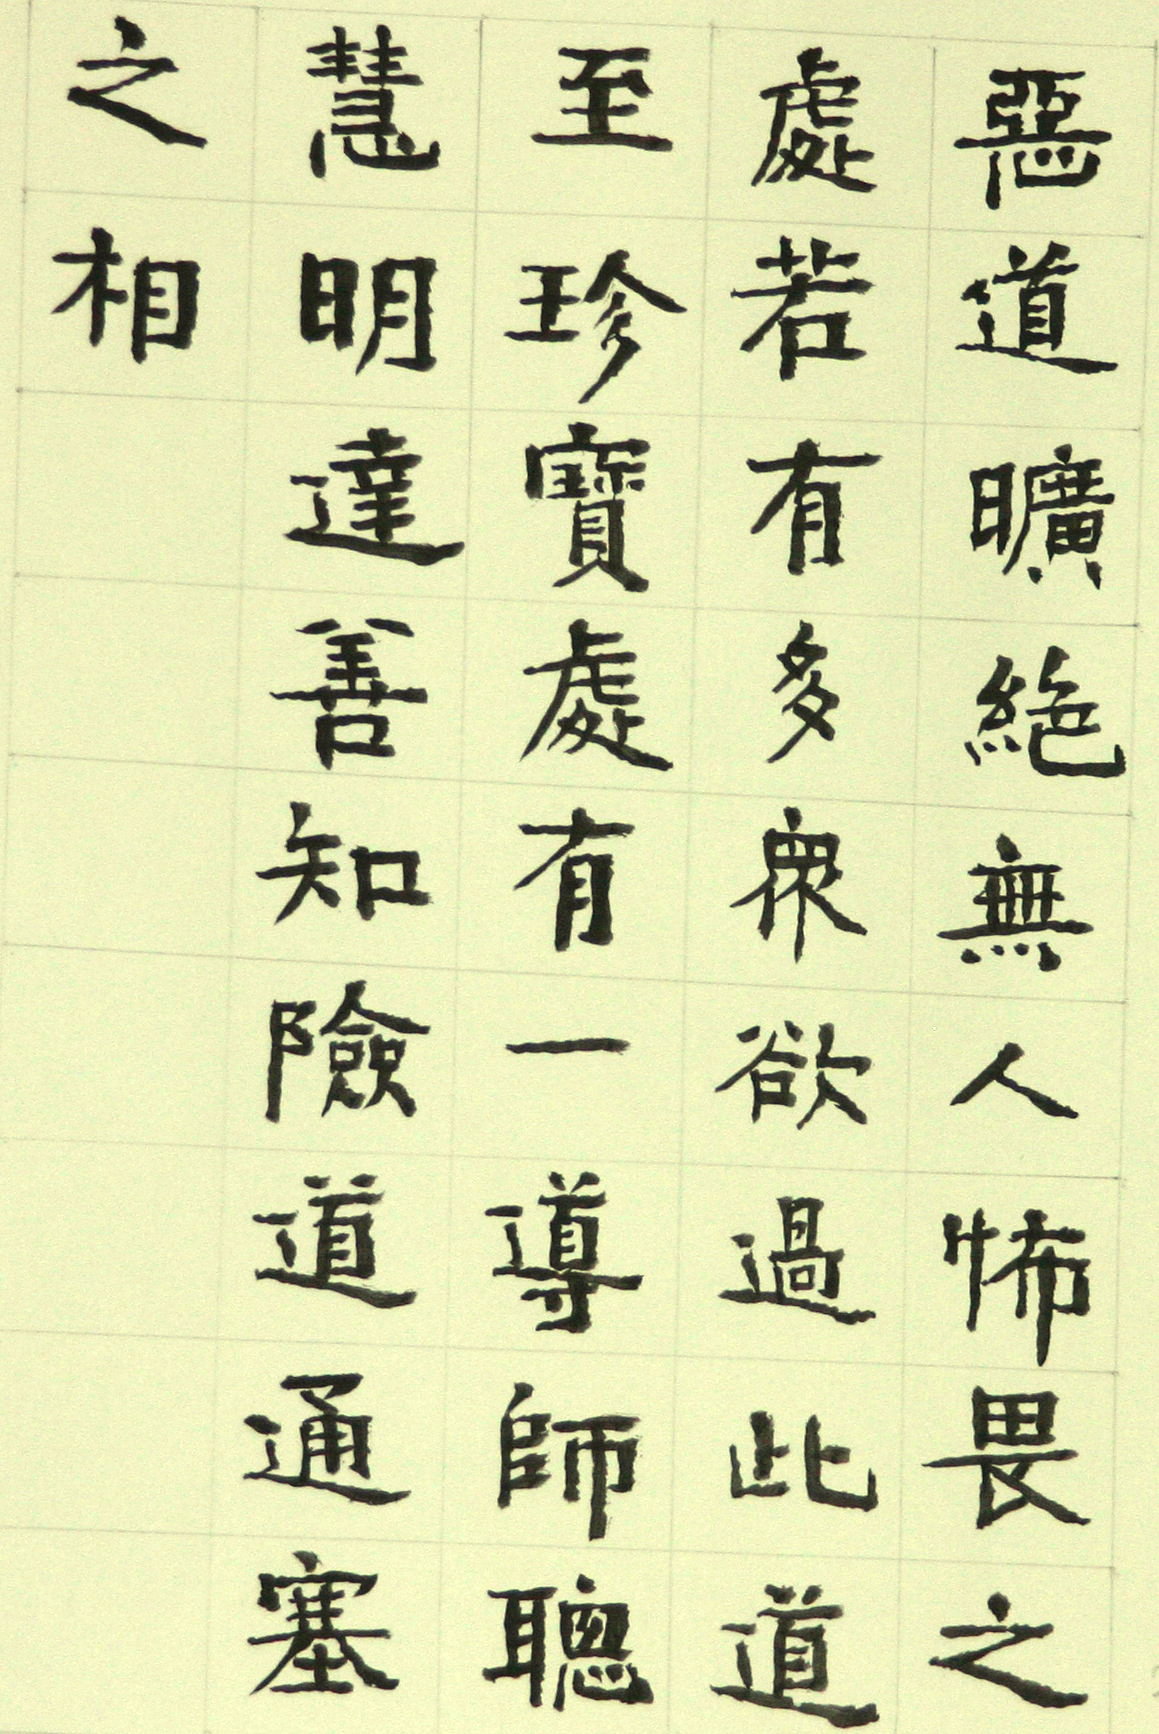 惡道曠絕無人怖畏之
處若有多衆欲過此道
至珍寶處有一導師聰
慧明達善知險道通塞
之相